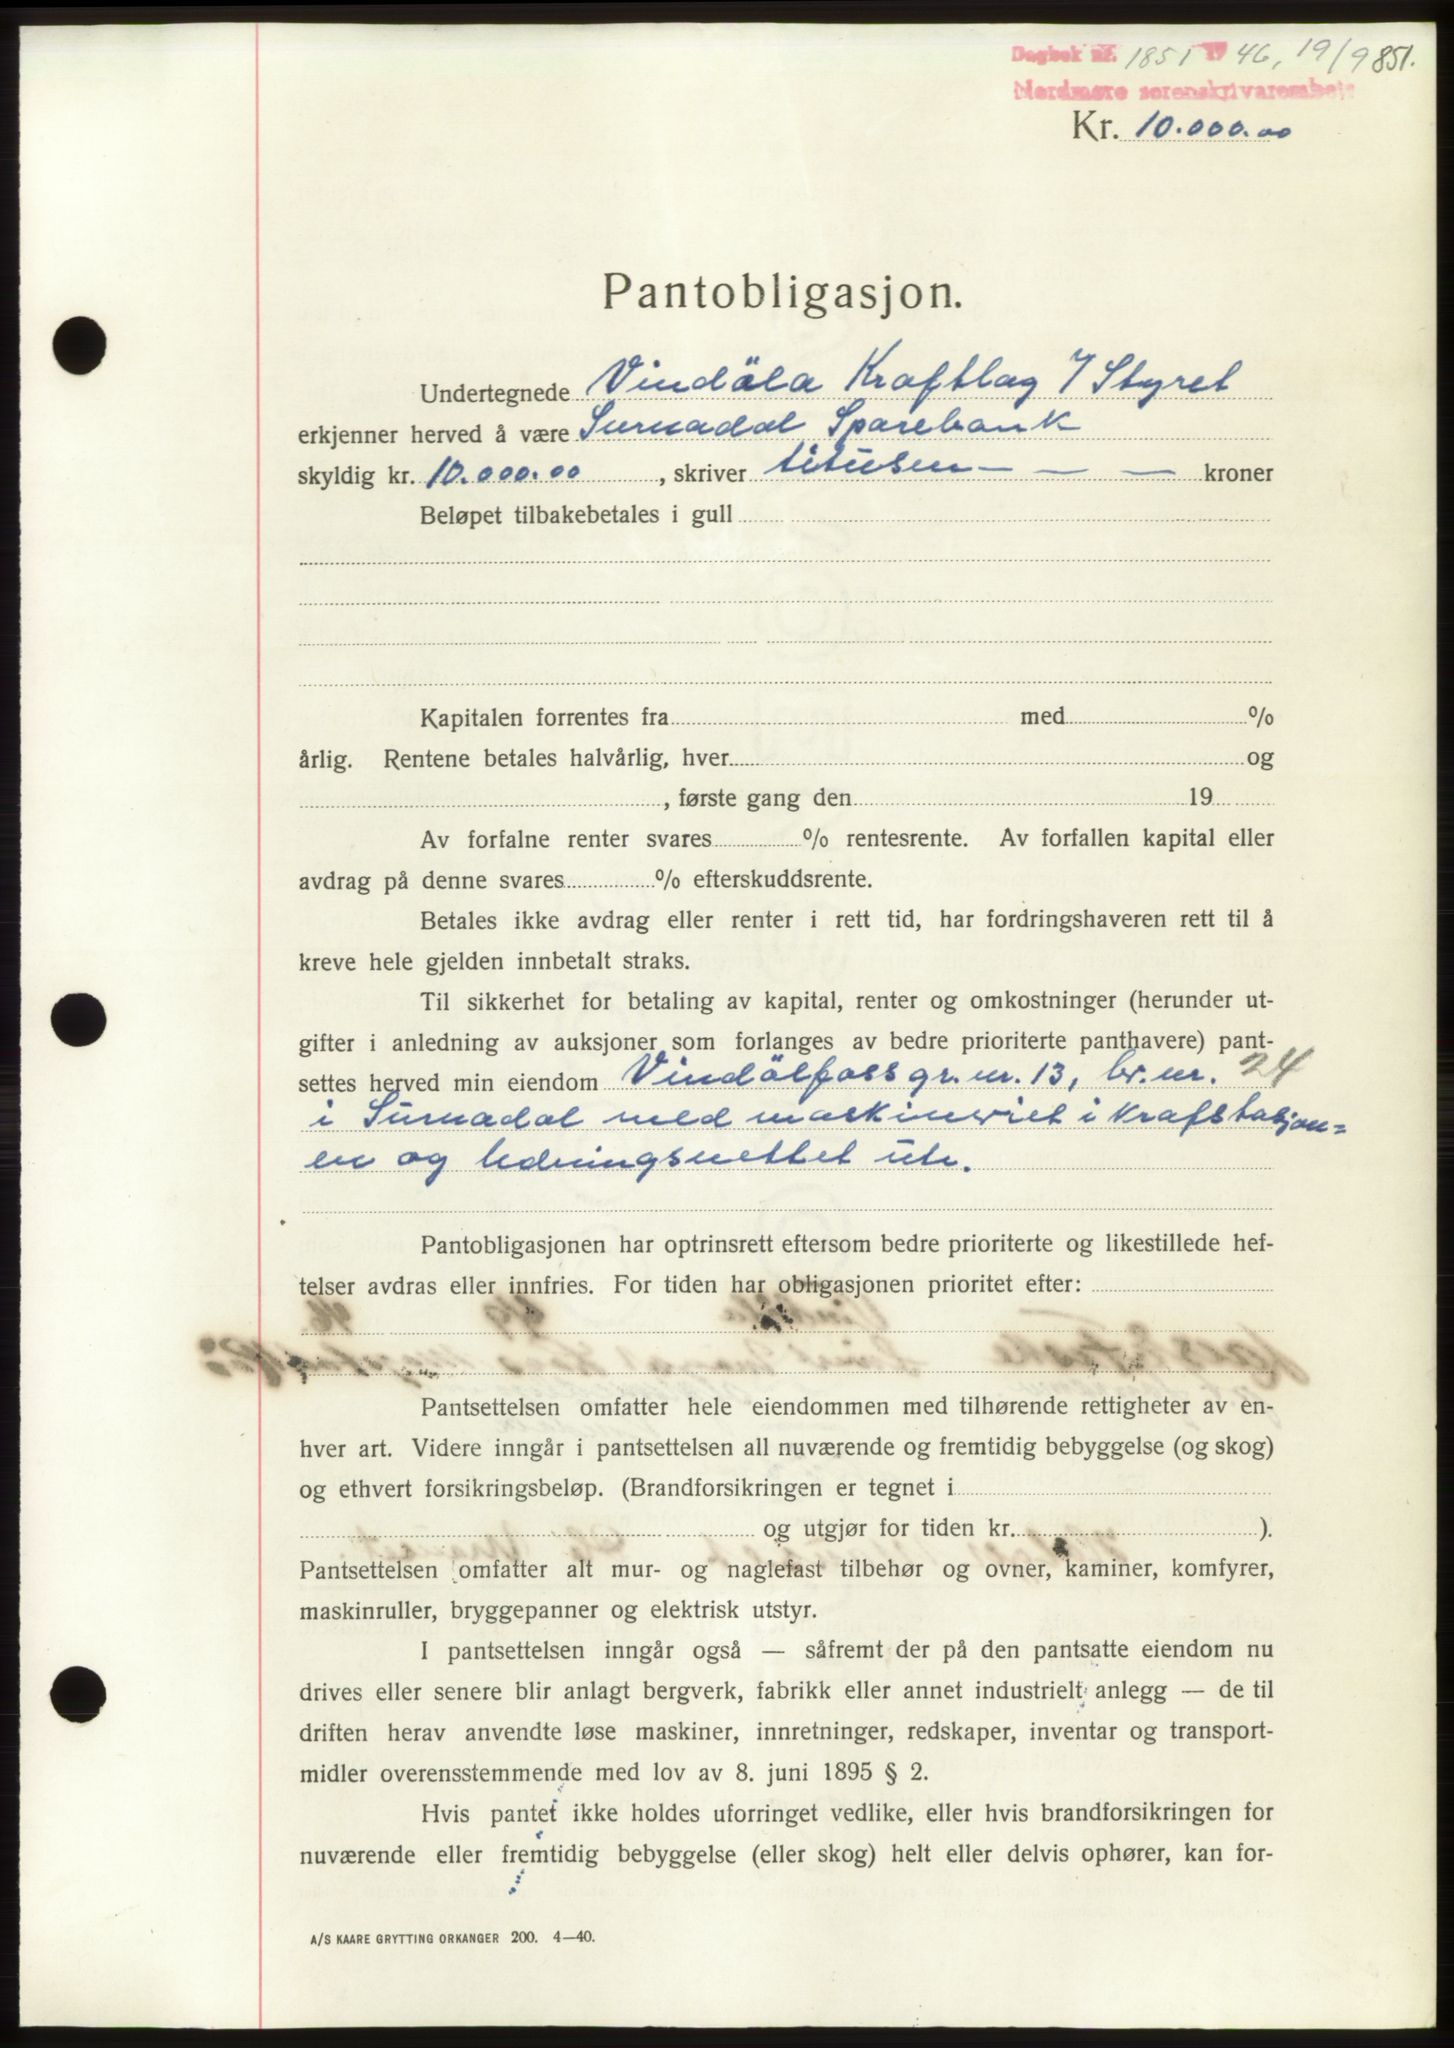 Dagbok nr. 1851 1946, 19/9 851.
Nordmøre sorenskrivarembete
Kr. 10.000.00
Pantobligasjon.
Undertegnede Vindöla Kraftlag / Styret
erkjenner herved å være Surnadal Sparebank
skyldig kr. 10.000.00, skriver titusen — — — kroner
Beløpet tilbakebetales i gull
Kapitalen forrentes fra med %
årlig. Rentene betales halvårlig, hver og
, første gang den 19
Av forfalne renter svares % rentesrente. Av forfallen kapital eller
avdrag på denne svares % efterskuddsrente.
Betales ikke avdrag eller renter i rett tid, har fordringshaveren rett til å
kreve hele gjelden innbetalt straks.
Til sikkerhet for betaling av kapital, renter og omkostninger (herunder ut-
gifter i anledning av auksjoner som forlanges av bedre prioriterte panthavere) pant-
settes herved min eiendom Vindölfoss gr. nr. 13, br. nr. 24
i Surnadal med maskineriet i Krafstasjon=
en og ledningsnettet ute.
Pantobligasjonen har optrinsrett eftersom bedre prioriterte og likestillede hef-
telser avdras eller innfries. For tiden har obligasjonen prioritet efter:
Pantsettelsen omfatter hele eiendommen med tilhørende rettigheter av en-
hver art. Videre inngår i pantsettelsen all nuværende og fremtidig bebyggelse (og skog)
og ethvert forsikringsbeløp. (Brandforsikringen er tegnet i
og utgjør for tiden kr. ).
Pantsettelsen omfatter alt mur- og naglefast tilbehør og ovner, kaminer, komfyrer,
maskinruller, bryggepanner og elektrisk utstyr.
I pantsettelsen inngår også — såfremt der på den pantsatte eiendom nu
drives eller senere blir anlagt bergverk, fabrikk eller annet industrielt anlegg — de til
driften herav anvendte løse maskiner, innretninger, redskaper, inventar og transport-
midler overensstemmende med lov av 8. juni 1895 § 2.
Hvis pantet ikke holdes uforringet vedlike, eller hvis brandforsikringen for
nuværende eller fremtidig bebyggelse (eller skog) helt eller delvis ophører, kan for-
A/S KAARE GRYTTING ORKANGER 200. 4—40.